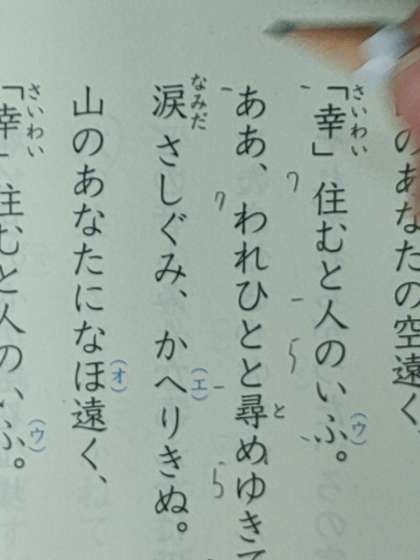 のあなたの空遠く、
「幸」住むと人のいふ。
さいわい
(ウ)
ああ、われひとと尋めゆきて
と
涙さしぐみ、かへりきぬ。
なみだ
(エ)
山のあなたになほ遠く、
(オ)
「幸」住むと人のいふ。
さいわい
(ウ)